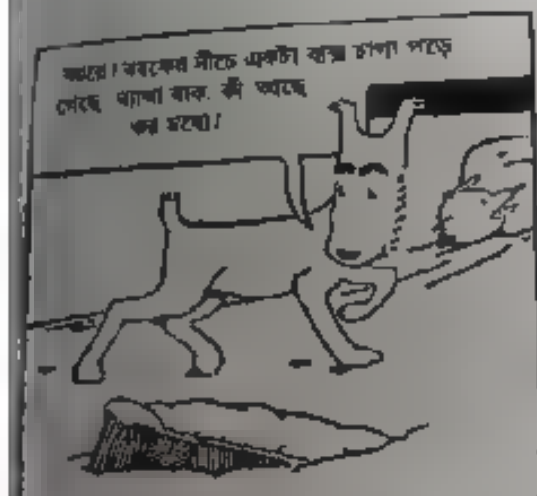 আরে! বরফের নীচে একটা বাক্স চাপা পড়ে
গেছে দ্যাখা যাক. কী আছে
ওর মধ্যে!